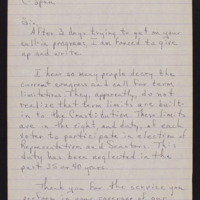 C-Span
Sir,
After 3 days trying to get on your
call-in programs, I am forced to give
up and write.
I hear so many people decry the
current congress and call for term
limitations. They, apparently, do not
realize that term limits are built
into the Constitution. These limits
are in the right, and duty, of each
voter to participate in election of
Representatives and Senators. This
duty has been neglected in the
past 35 or 40 years.
Thank you for the service you
perform in your coverage of our